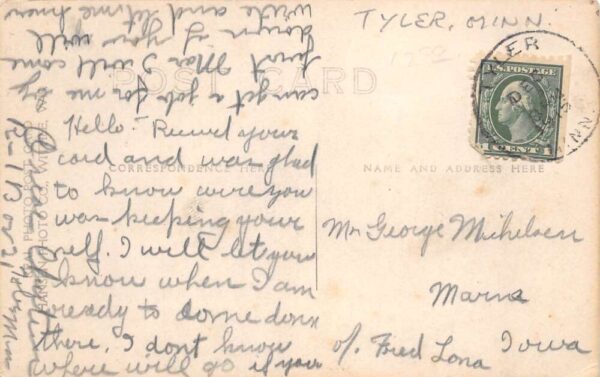 TYLER, MINN.
POST CARD
CORRESPONDENCE HERE
NAME AND ADDRESS HERE
TYLER
MINN
DEC
U.S. POSTAGE
1 CENT 1
Hello. Rec'ved your
card and was glad
to know were you
was keeping your
self. I will let you
know when I am
ready to come down
there. I dont know
where will go if you
can get a job for me by
first Mar I will come
down if you will
write and let me know
Chris
Tyler Minn
Mr George Michelsen
Marne
Iowa
c/o. Fred Lona
PHOTO CO.